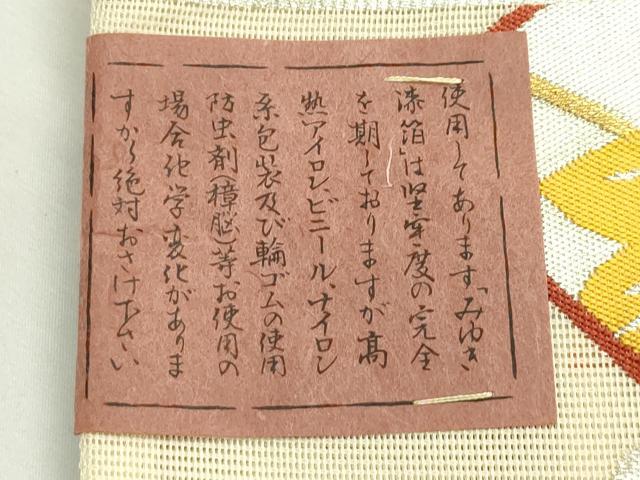 使用してあります「みゆき
漆箔」は堅牢度の完全
を期しておりますが高
熱アイロン、ビニール、ナイロン
系包装及び輪ゴムの使用
防虫剤(樟脳)等お使用の
場合化学変化がありま
すから絶対おさけ下さい